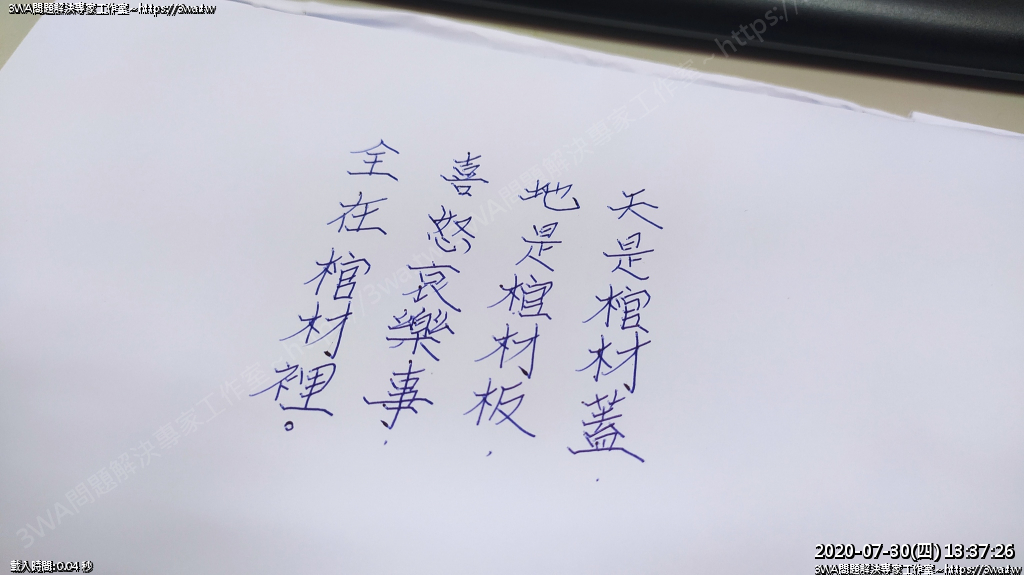 3WA問題解決專家工作室~https://3wa.tw
天是棺材蓋,
地是棺材板,
喜怒哀樂事,
全在棺材裡。
3WA問題解決專家工作室~https://3wa.tw
3WA問題解決專家工作室~https://
載入時間:0.04 秒
2020-07-30(四) 13:37:26
3WA問題解決專家工作室~https://3wa.tw